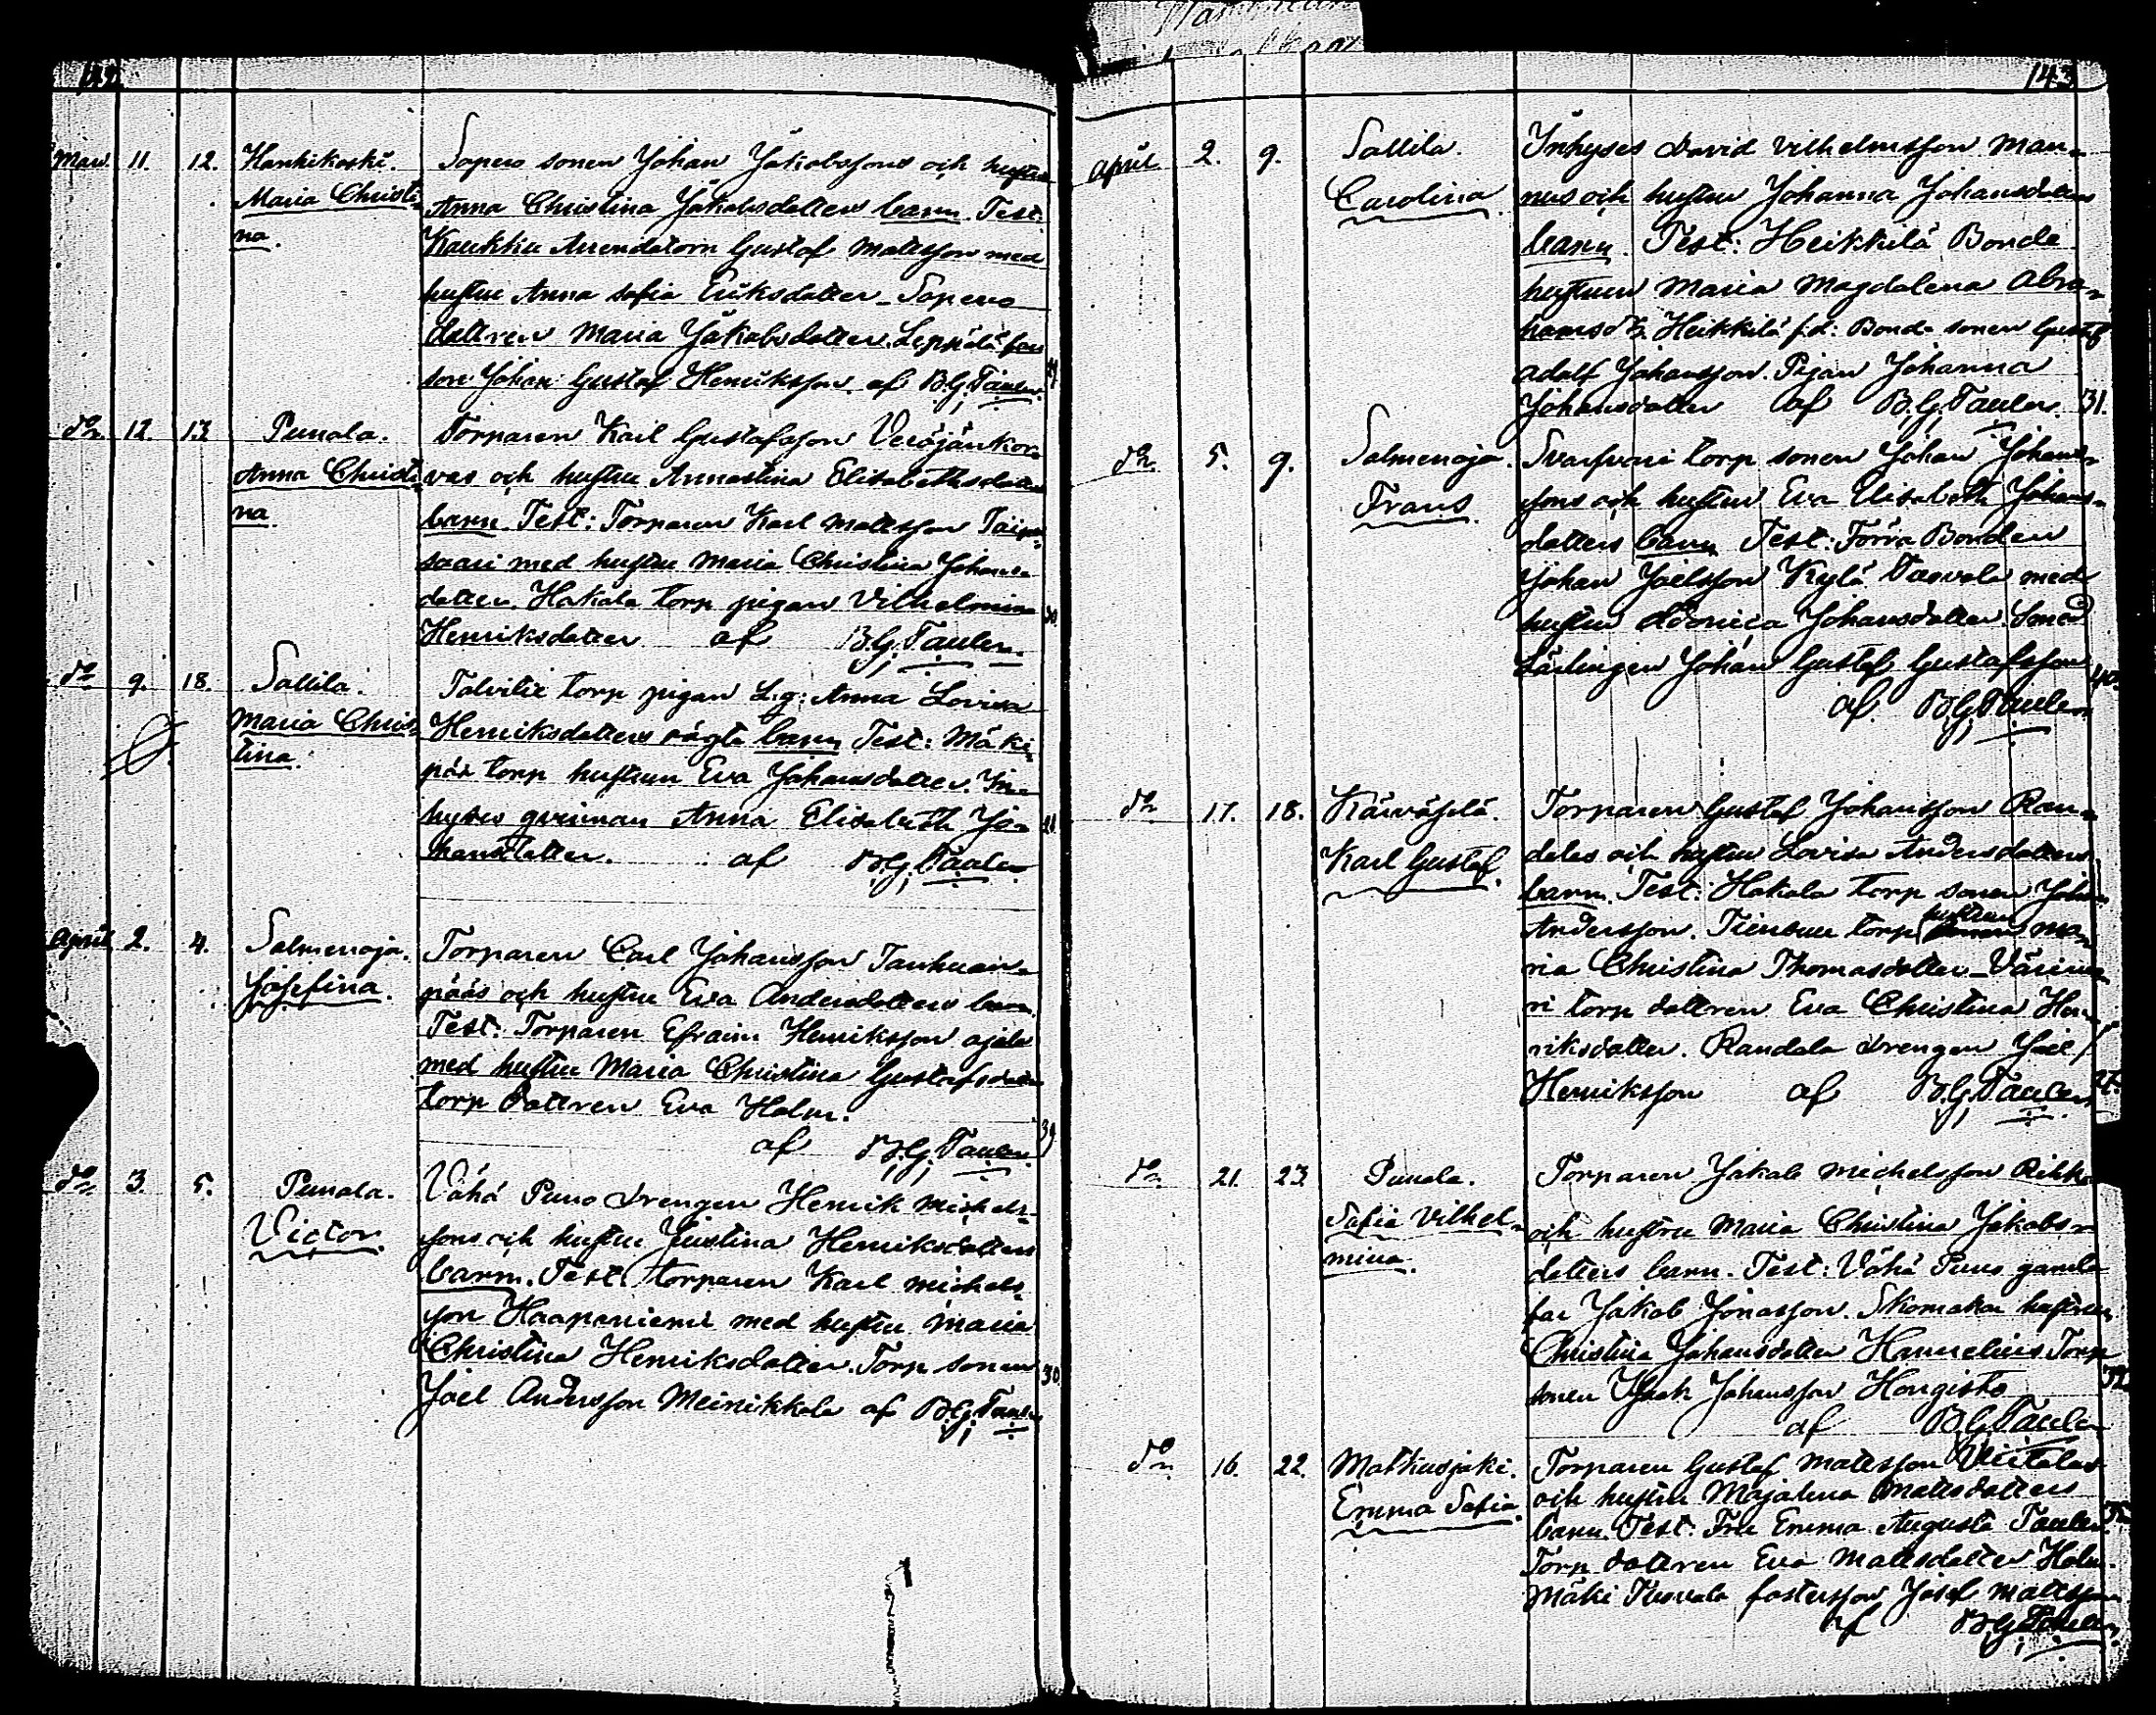 142
Mars. 11. 12. Hanhikoski. Sapero sonen Johan Jakobssons och hustru
Maria Christi- Anna Christina Jakobsdotters barn. Test:
na. Kaukku Arrendatorn Gustaf Mattsson med
hustru Anna Sofia Eriksdotter. Sapero
dottren Maria Jakobsdotter. Leppälä
son Johan Gustaf Henriksson af B.G. Taulen.
do 12. 13. Punola. Torparen Karl Gustafsson
Anna Christi- vas och hustru Annastina Elisabethsdotters
na. barn. Test: Torparen Karl Mattsson
saari med hustru Maria Christina Johans-
dotter. Hakala torp pigan Vilhelmina
Henriksdotter af B.G. Taulen.
do 9. 18. Sallila. Talvitie torp pigan L.g: Anna Lovisa
Maria Chris- Henriksdotters oägta barn Test: Mäki-
tina. pää torp hustrun Eva Johansdotter. In-
hyses qvinnan Anna Elisabeth Jo-
hansdotter. af B.G. Taulen
April 2. 4. Salmenoja. Torparen Carl Johansson Tanhuan-
Josefina. pääs och hustru Eva Andersdotters barn.
Test: Torparen Efraim Henriksson Ojala
med hustru Maria Christina Gustafsdotter
torp dottren Eva Holm.
af B.G. Taulen. 39
do 3. 5. Punola. Vähä Puno drengen Henrik Michels-
Victor. sons och hustru Justina Henriksdotters
barn. Test: torparen Karl Michels-
son Haapaniemi med hustru Maria
Christina Henriksdotter. Torp sonen 30.
Joel Andersson Meinikkala af B.G. Taulen
143
April 2. 9. Sallila. Inhyses David Vilhelmsson Man-
Carolina. nus och hustru Johanna Johansdotters
barn. Test: Heikkilä Bonde
hustrun Maria Magdalena Abra-
hamsd. Heikkilä f.d: Bonde sonen Gustaf
Adolf Johansson. Pigan Johanna
Johansdotter af B.G. Taulen. 31.
do 5. 9. Salmenoja. torp sonen Johan Johans-
Frans. sons och hustru Eva Elisabeth Johans-
dotters barn Test: Förra Bonden
Johan Joelsson Kylä Tasvala med
hustru Johansdotter. Smed
Lärlingen Johan Gustaf Gustafsson 40.
af B.G. Taulen
do 17. 18. Kärväselä. Torparen Gustaf Johansson Ran-
Karl Gustaf. dalas och hustru Lovisa Andersdotters
barn. Test: Hakala torp sonen Johan
Andersson. torp hustrun Ma-
ria Christina Thomasdotter.
ri torp dottren Eva Christina Hen-
riksdotter. Randala drengen Joel
Henriksson af B.G. Taulen
do 21. 23. Punola. Torparen Jakob Michelsson
Sofia Vilhel- och hustru Maria Christina Jakobs-
mina. dotters barn. Test: Vähä Puno gamla
far Jakob Jonasson. Skomakar hustrun
Christina Johansdotter Hannelius. Torp
sonen Isaak Johansson Hongisto
af B.G. Taulen
do 16. 22. Matkusjoki. Torparen Gustaf Mattsson Viitalas
Emma Sofia. och hustru Majalena Mattsdotters
barn. Test: Fru Emma Augusta Taulen.
Torp dottren Eva Mattsdotter Holm.
Mäki Tasvala fosterson Josef Mattsson
af B.G. Taulen